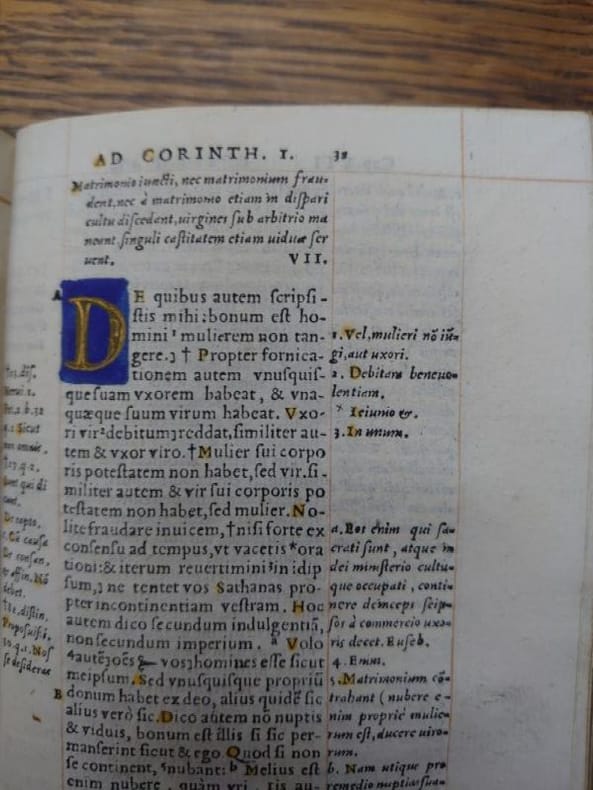 AD CORINTH. I. 38
Matrimonio iuncti, nec matrimonium frau-
dent, nec à matrimonio etiam in dispari
cultu discedant, uirgines sub arbitrio ma
neant, singuli castitatem etiam uiduæ ser
uent. VII.
A
DE quibus autem scripsi-
stis mihi: bonum est ho-
mini ¹ mulierem non tan-
gere.ȝ † Propter fornica-
tionem autem vnusquis-
que suam vxorem habeat, & vna-
quæque suum virum habeat. Vxo-
ri vir ² debitumȝ reddat, similiter au-
tem & vxor viro. † Mulier sui corpo
ris potestatem non habet, sed vir. si-
militer autem & vir sui corporis po
testatem non habet, sed mulier. No-
lite fraudare inuicem, † nisi forte ex
consensu ad tempus, vt vacetis * ora
tioni: & iterum reuertimini ³ in idip
sum,ȝ ne tentet vos Sathanas pro-
pter incontinentiam vestram. Hoc
autem dico secundum indulgentiã,
non secundum imperium. ª Volo
vosȝ homines esse sicut
meipsum. Sed vnusquisque propriũ
B
donum habet ex deo, alius quidẽ sic
alius verò sic. Dico autem nõ nuptis
& viduis, bonum est illis si sic per-
manserint sicut & ego. Quod si non
se continent, ⁵ nubant: ᵇ Melius est
enim nubere, quàm vri
1. Vel, mulieri nõ iũ-
gi, aut uxori.
2. Debitam beneuo-
lentiam.
* Ieiunio &.
3. In unum.
a. Eos enim qui sa-
crati sunt, atque in
dei ministerio cultu-
que occupati, conti-
nere deinceps seip-
sos à commercio uxo-
ris decet. Euseb.
4. Emm.
5. Matrimonium cõ-
trahant (nubere e-
nim propriè mulie-
rum est, ducere uiro-
rum.
b. Nam utique pro
remedio nuptias